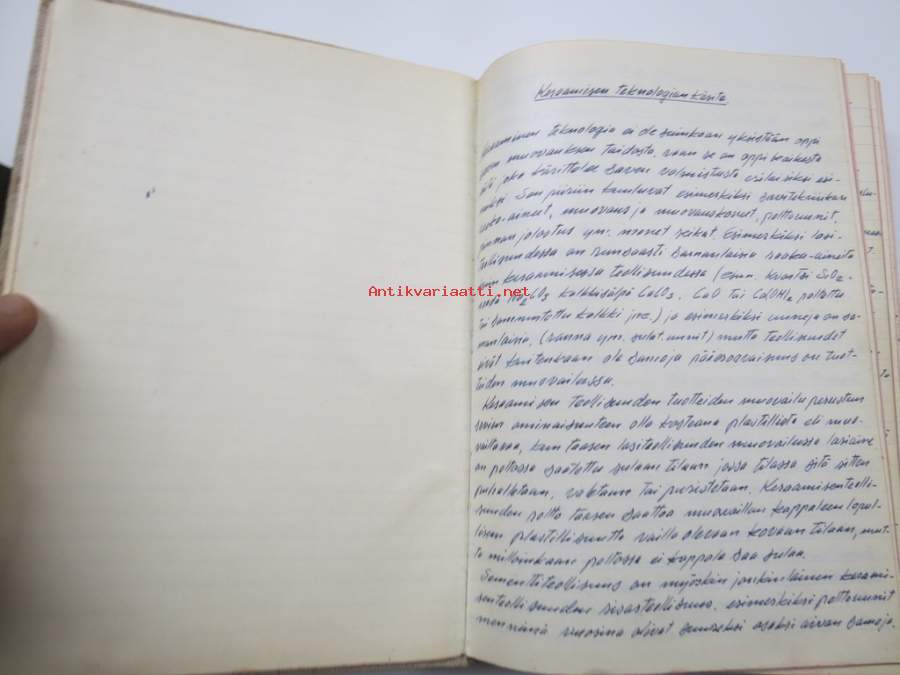 Keraamisen teknologian käsite
Keraaminen teknologia ei ole suinkaan yksistään oppi
saven muovauksen taidosta, vaan se on oppi kaikesta
siitä joka käsittelee saven valmistusta erilaisiksi esi-
neiksi. Sen piiriin kuuluvat esimerkiksi savitekniikan
raaka-aineet, muovaus ja muovauskoneet, polttouunit,
jalostus ym. monet seikat. Esimerkiksi lasi-
teollisuudessa on runsaasti samanlaisia raaka-aineita
kuin keraamisessa teollisuudessa (esim. kvartsi SiO2,
sooda Na2CO3 kalkkisälpä CaCO3, CaO tai Ca(OH)2 poltettu
Antikvariaatti.net
tai sammutettu kalkki jne.) ja esimerkiksi uuneja on sa-
manlaisia, (vanna ym. sulat. uunit) mutta teollisuudet
eivät kuitenkaan ole samoja pääasovaisuus on tuot-
teiden muovailussa.
Keraamisen teollisuuden tuotteiden muovailu perustuu
saven ominaisuuteen olla kosteana plastillista eli muo-
vailtavaa, kun taasen lasiteollisuuden muovailussa lasiaine
on poltossa saatettu sulaan tilaan jossa tilassa sitä sitten
puhalletaan, valetaan tai puristetaan. Keraamisen teolli-
suuden poltto taasen saattaa muovaillun kappaleen lopul-
lisen plastillisuutta vailla olevaan kovaan tilaan, mut-
ta milloinkaan poltossa ei kappale saa sulaa.
Sementtiteollisuus on myöskin jonkinlainen keraami-
senteollisuuden sisarteollisuus, esimerkiksi polttouunit
menneinä vuosina olivat suureksi osaksi aivan samoja.